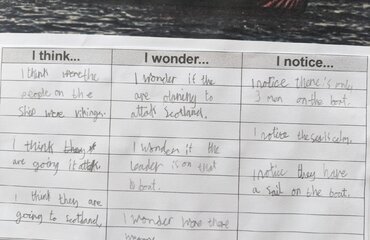 I think...
I think were the
people on the
ship were vikings.
I think
are going it attak
I think they are
going to scotland,
I wonder...
I wonder if the
are planing to
attak Scotland.
I wonder if the
leader is on that
boat.
I wonder were there
I notice...
I notice there is only
3 men on the boat.
I notice the sea is calm.
I notice they have
a sail on the boat.